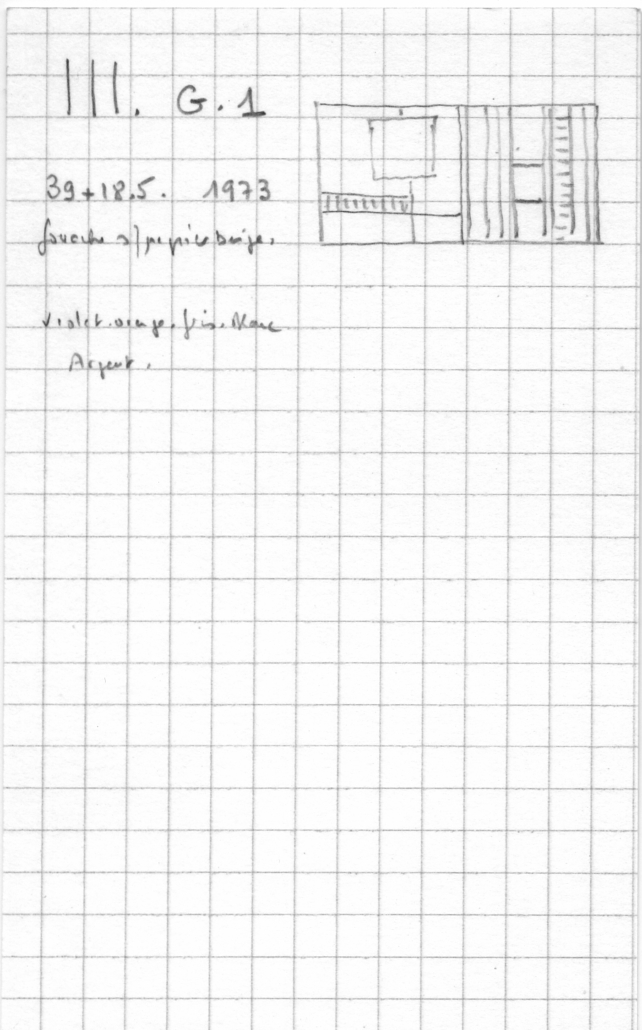 III. G.1
39+18.5. 1973
Gouache s/ papier beige.
Violet. orange. gris. Blanc
Argent.